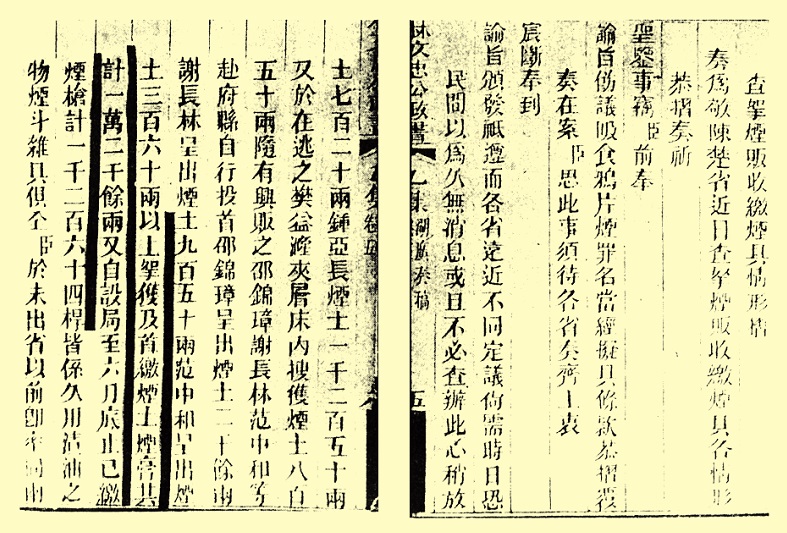 查拏煙販收繳煙具情形摺
奏爲敬陳楚省近日查拏煙販收繳煙具各情形
恭摺奏祈
聖鑒事竊臣前奉
諭旨飭議吸食鴉片煙罪名當經擬具條款恭摺覆
奏在案臣思此事須待各省奏齊上衷
宸斷奉到
諭旨頒發祗遵而各省遠近不同定議尙需時日恐
民間以爲久無消息或且不必查辦此心稍放
林文忠公政書
乙集 湖廣奏稿
五
土七百二十兩鍾亞長煙土一千二百五十兩
又於在逃之樊益漋夾層床內搜獲煙土八百
五十兩隨有興販之邵錦璋謝長林范中和等
赴府縣自行投首邵錦璋呈出煙土二千餘兩
謝長林呈出煙土九百五十兩范中和呈出煙
土三百六十兩以上拏獲及首繳煙土煙膏共
計一萬二千餘兩又自設局至六月底止已繳
煙槍計一千二百六十四桿皆係久用漬油之
物煙斗雜具俱全臣於未出省以前卽率同兩